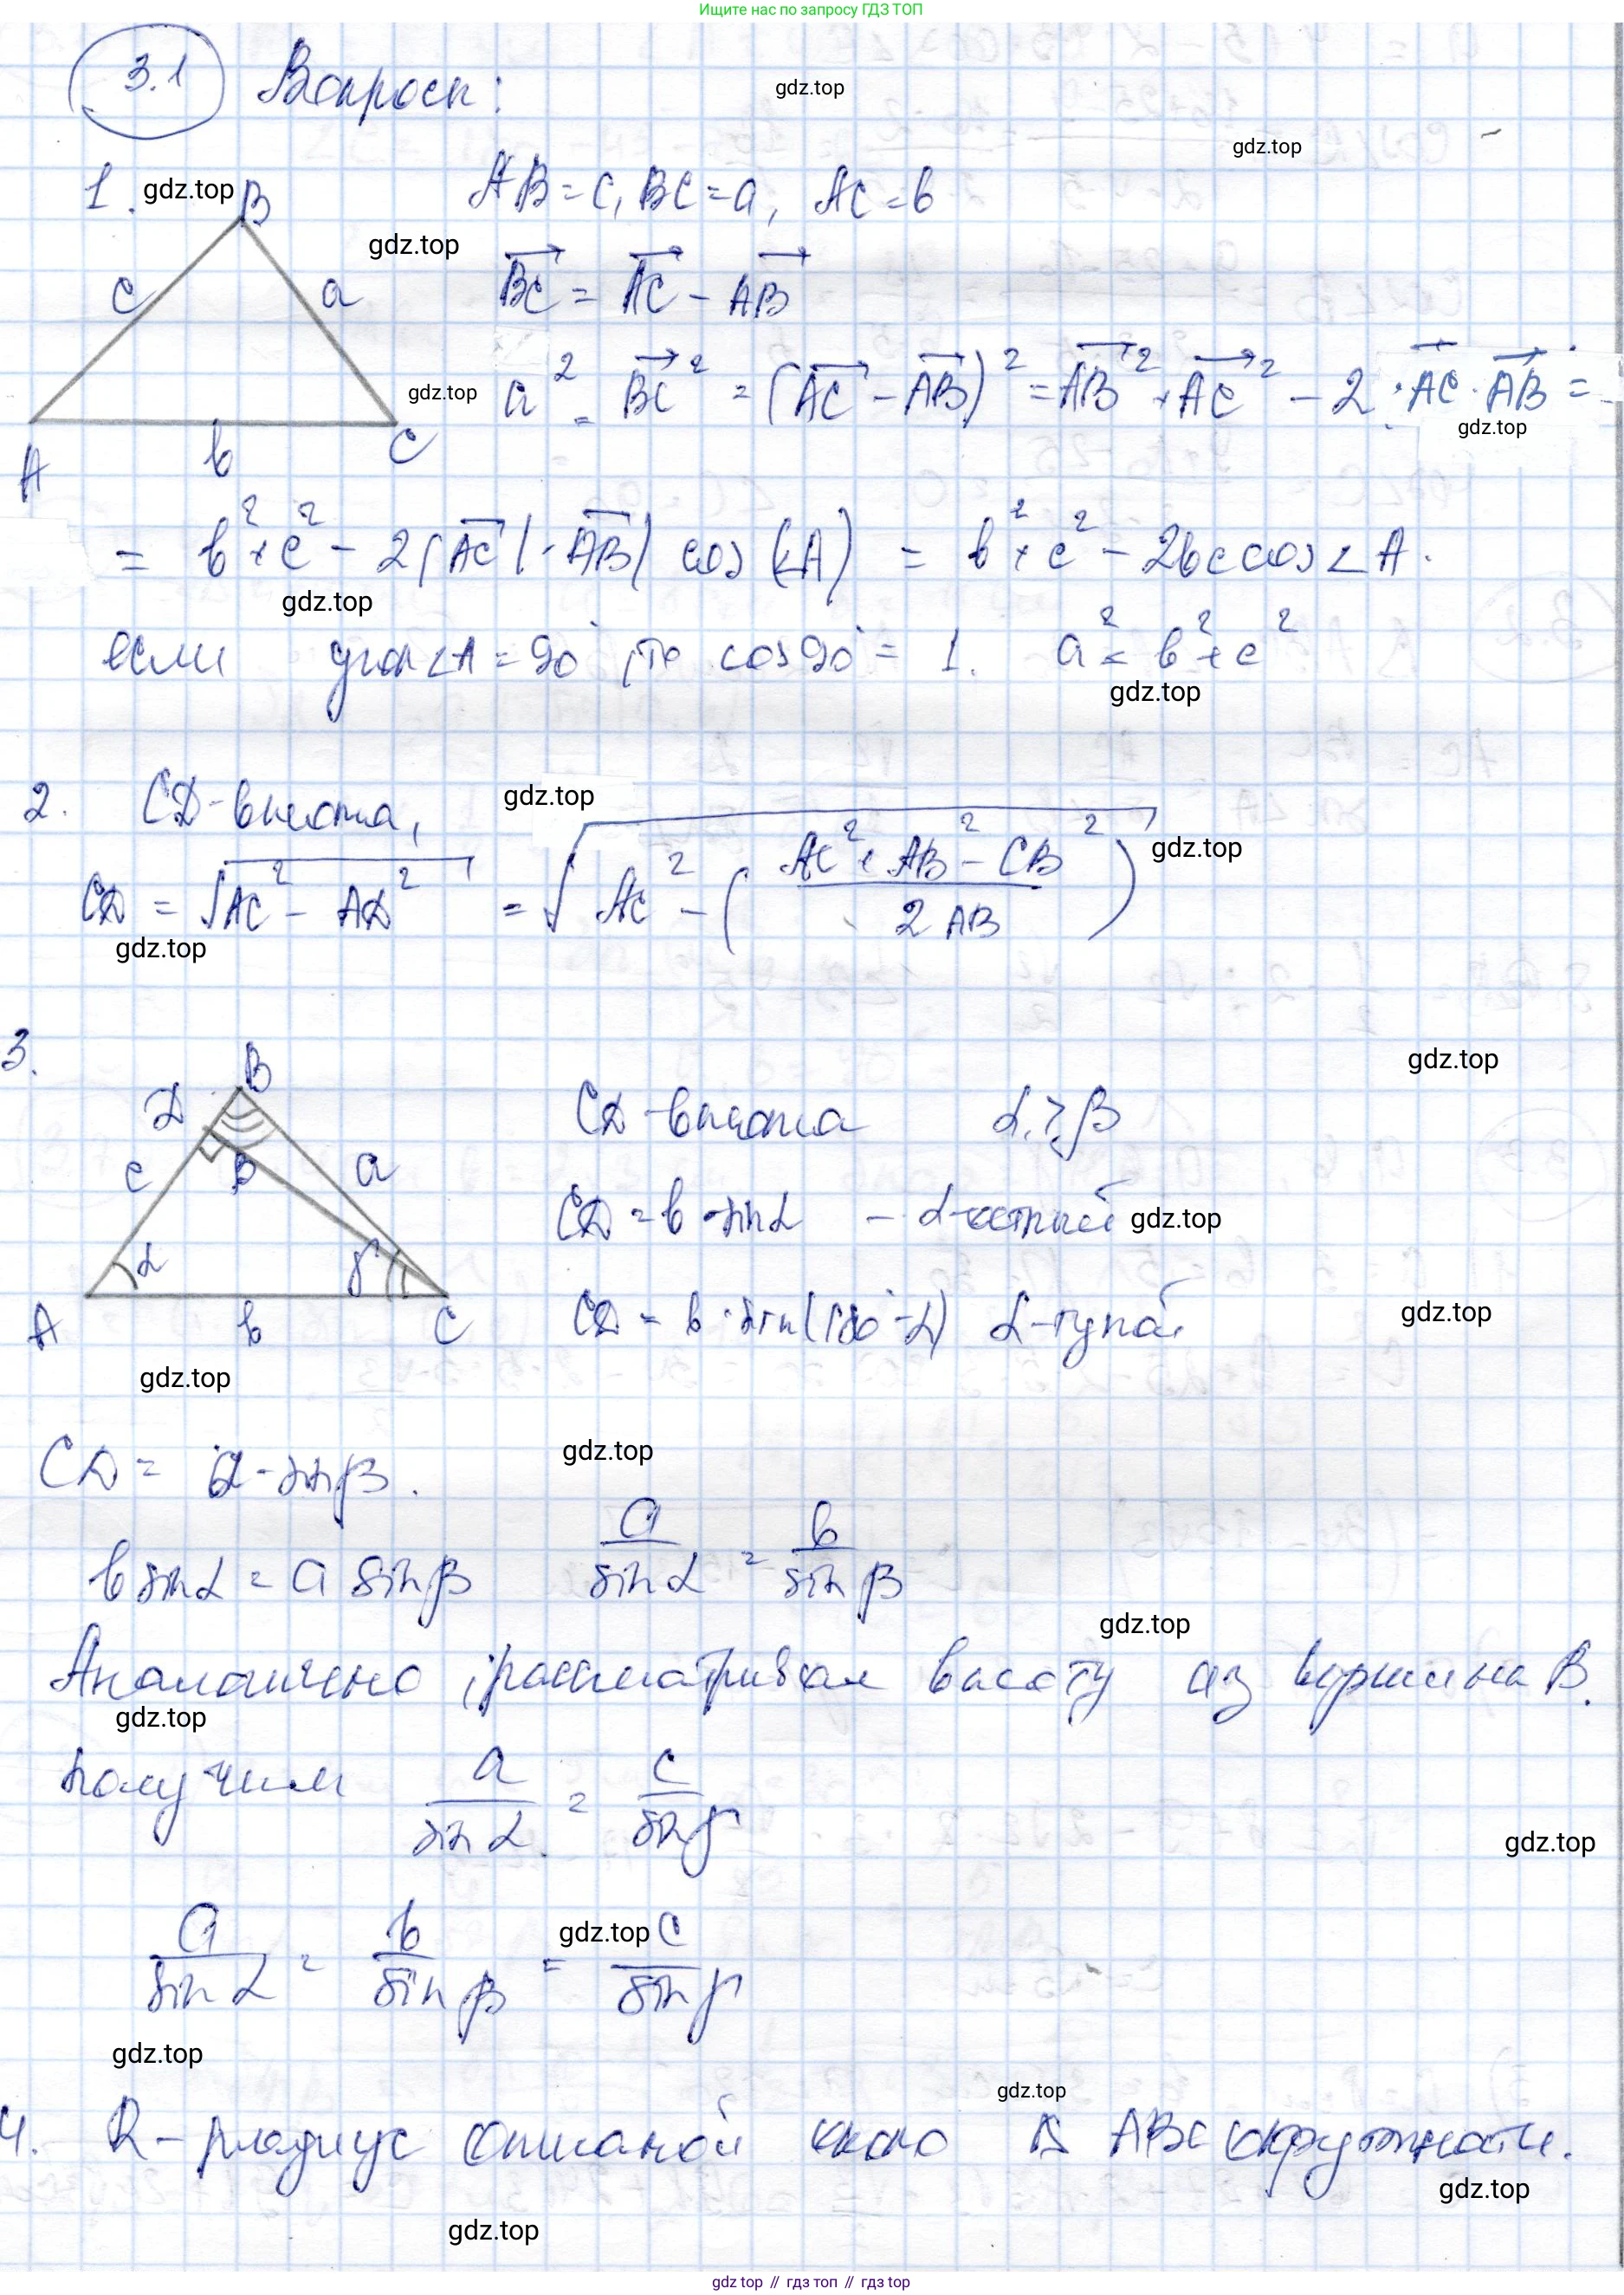 Ищите нас по запросу ГДЗ ТОП
3.1 Вопросы:
gdz.top
gdz.top
1. gdz.top B AB = c, BC = a, AC = b
gdz.top
c a BC = AC - AB
gdz.top a² = BC² = (AC - AB)² = AB² + AC² - 2 · AC · AB =
gdz.top
A b C
= b² + c² - 2|AC|·|AB| cos(∠A) = b² + c² - 2bc cos∠A.
gdz.top
если угол ∠A = 90°, то cos90° = 1. a² = b² + c²
gdz.top
2. CD - высота, gdz.top
CD = √AC² - AD² = √AC² - (AC² + AB² - CB² / 2AB) gdz.top
gdz.top
3.
gdz.top
B
D CD - высота α ≥ β
c β a
CD = b · sinα - α - острый gdz.top
α γ
A b C CD = b · sin(180° - α) α - тупой gdz.top
gdz.top
CD = a · sinβ. gdz.top
b sinα = a sinβ a/sinα = b/sinβ
gdz.top
Аналогично, рассматривая высоту из вершины B.
gdz.top
получим a/sinα = c/sinγ
gdz.top
a/sinα = b/sinβ = gdz.top c/sinγ
gdz.top
gdz.top
4. R - радиус описаной около Δ ABC окружности.
gdz.top
gdz.top
gdz top // гдз топ // gdz top